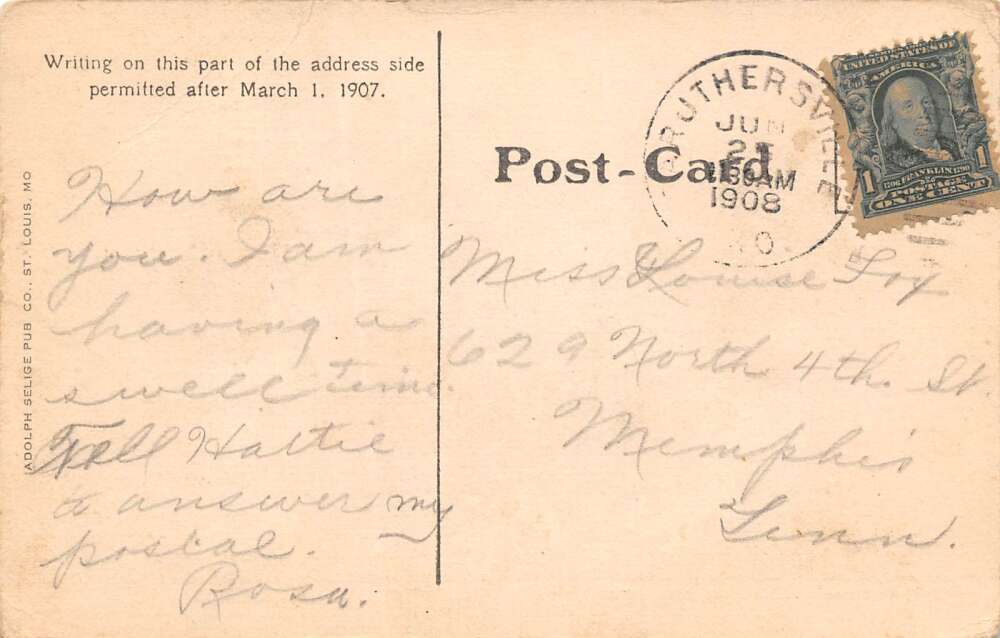 Writing on this part of the address side
permitted after March 1, 1907.
Post-Card
RUTHERSVILLE
JUN
1908
O.
UNITED STATES OF
AMERICA
1 1
POSTAGE
ONE CENT
ADOLPH SELIGE PUB CO., ST. LOUIS, MO
How are
you. I am
having a
swell time.
Tell Hattie
to answer my
postal.
Rosa.
Miss Louise Foy
629 North 4th. St.
Memphis
Tenn.